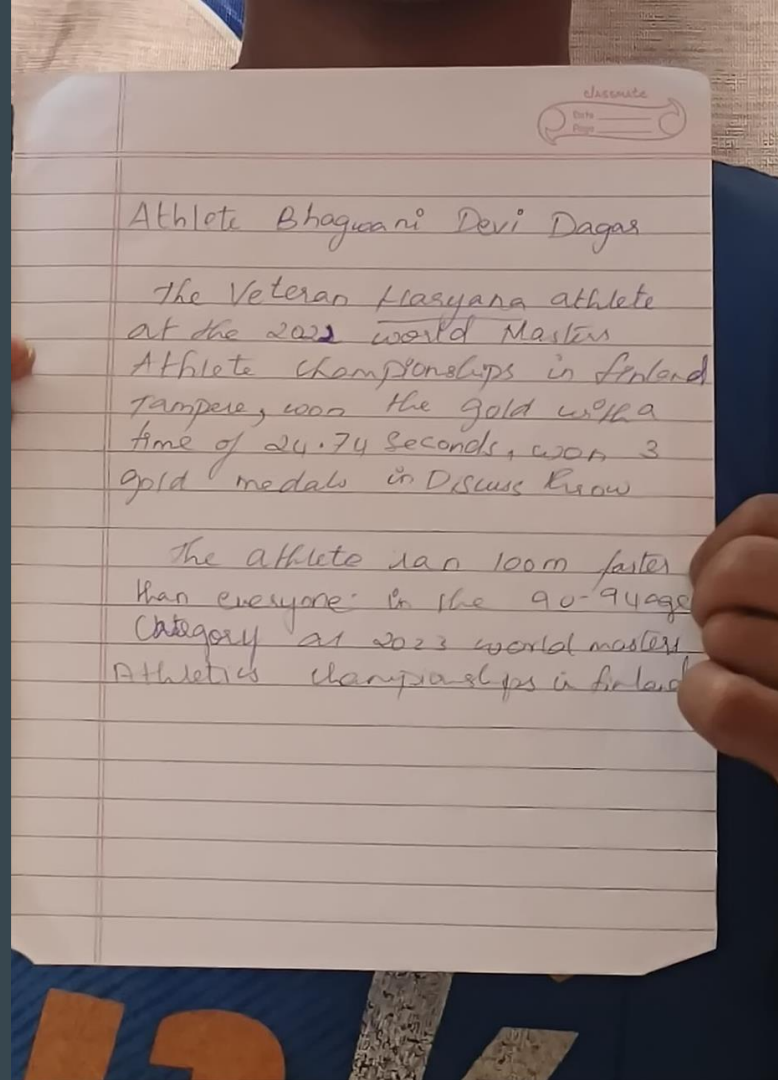 classmate
Date
Page
Athlete Bhagwani Devi Dagar
The Veteran Haryana athlete
at the 2022 world Masters
Athlete championships in finland
Tampere, won the gold with a
time of 24.74 Seconds, won 3
gold medals in Discuss throw
The athlete ran 100m faster
than everyone in the 90-94 age
Category at 2023 world masters
Athletics championships in finland